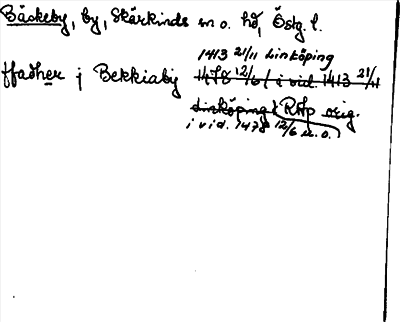 Bäckeby, by, Skärkinds sn o. hd, Östg. l.
1413 21/11 Linköping
ffadher j Bekkiaby 1478 12/6 ( i vid. 1413 21/11
Linköping) RAp orig.
i vid. 1478 12/6 u.o.